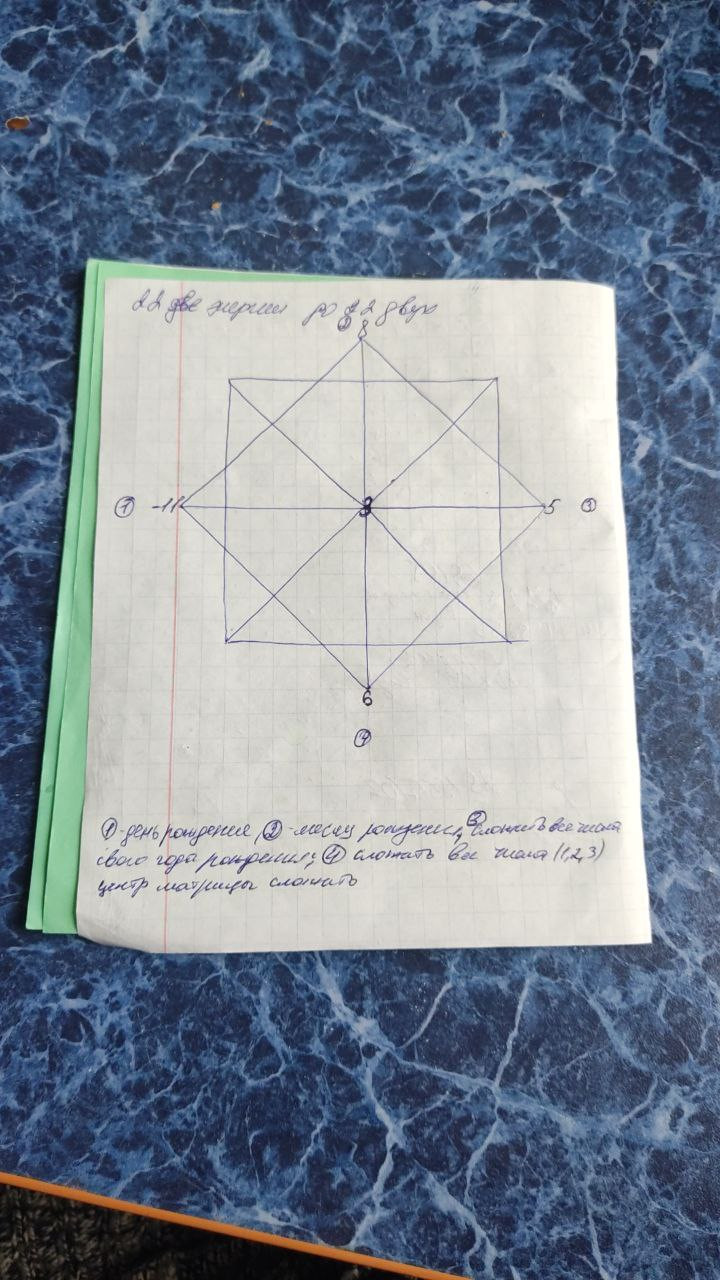 22 две энергии до 22 двух
② 8
① -11 5 ③
6
④
①-день рождения, ②-месяц рождения, ③ сложить все числа
свого года рождения; ④ сложать все числа (1,2,3)
центр матрицы сложать